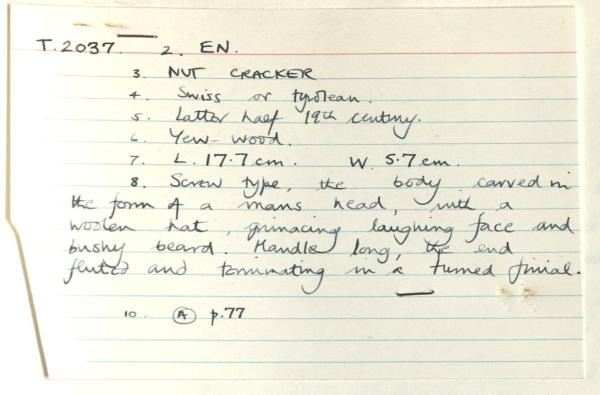 T.2037. 2. EN.
3. NUT CRACKER
4. Swiss or tyrolean.
5. Latter half 19th century.
6. Yew-wood.
7. L. 17.7cm. W. 5.7cm.
8. Screw type, the body carved in
the form of a mans head, with a
woolen hat, grimacing laughing face and
bushy beard. Handle long, the end
fluted and terminating in a turned finial.
10. (A) p.77